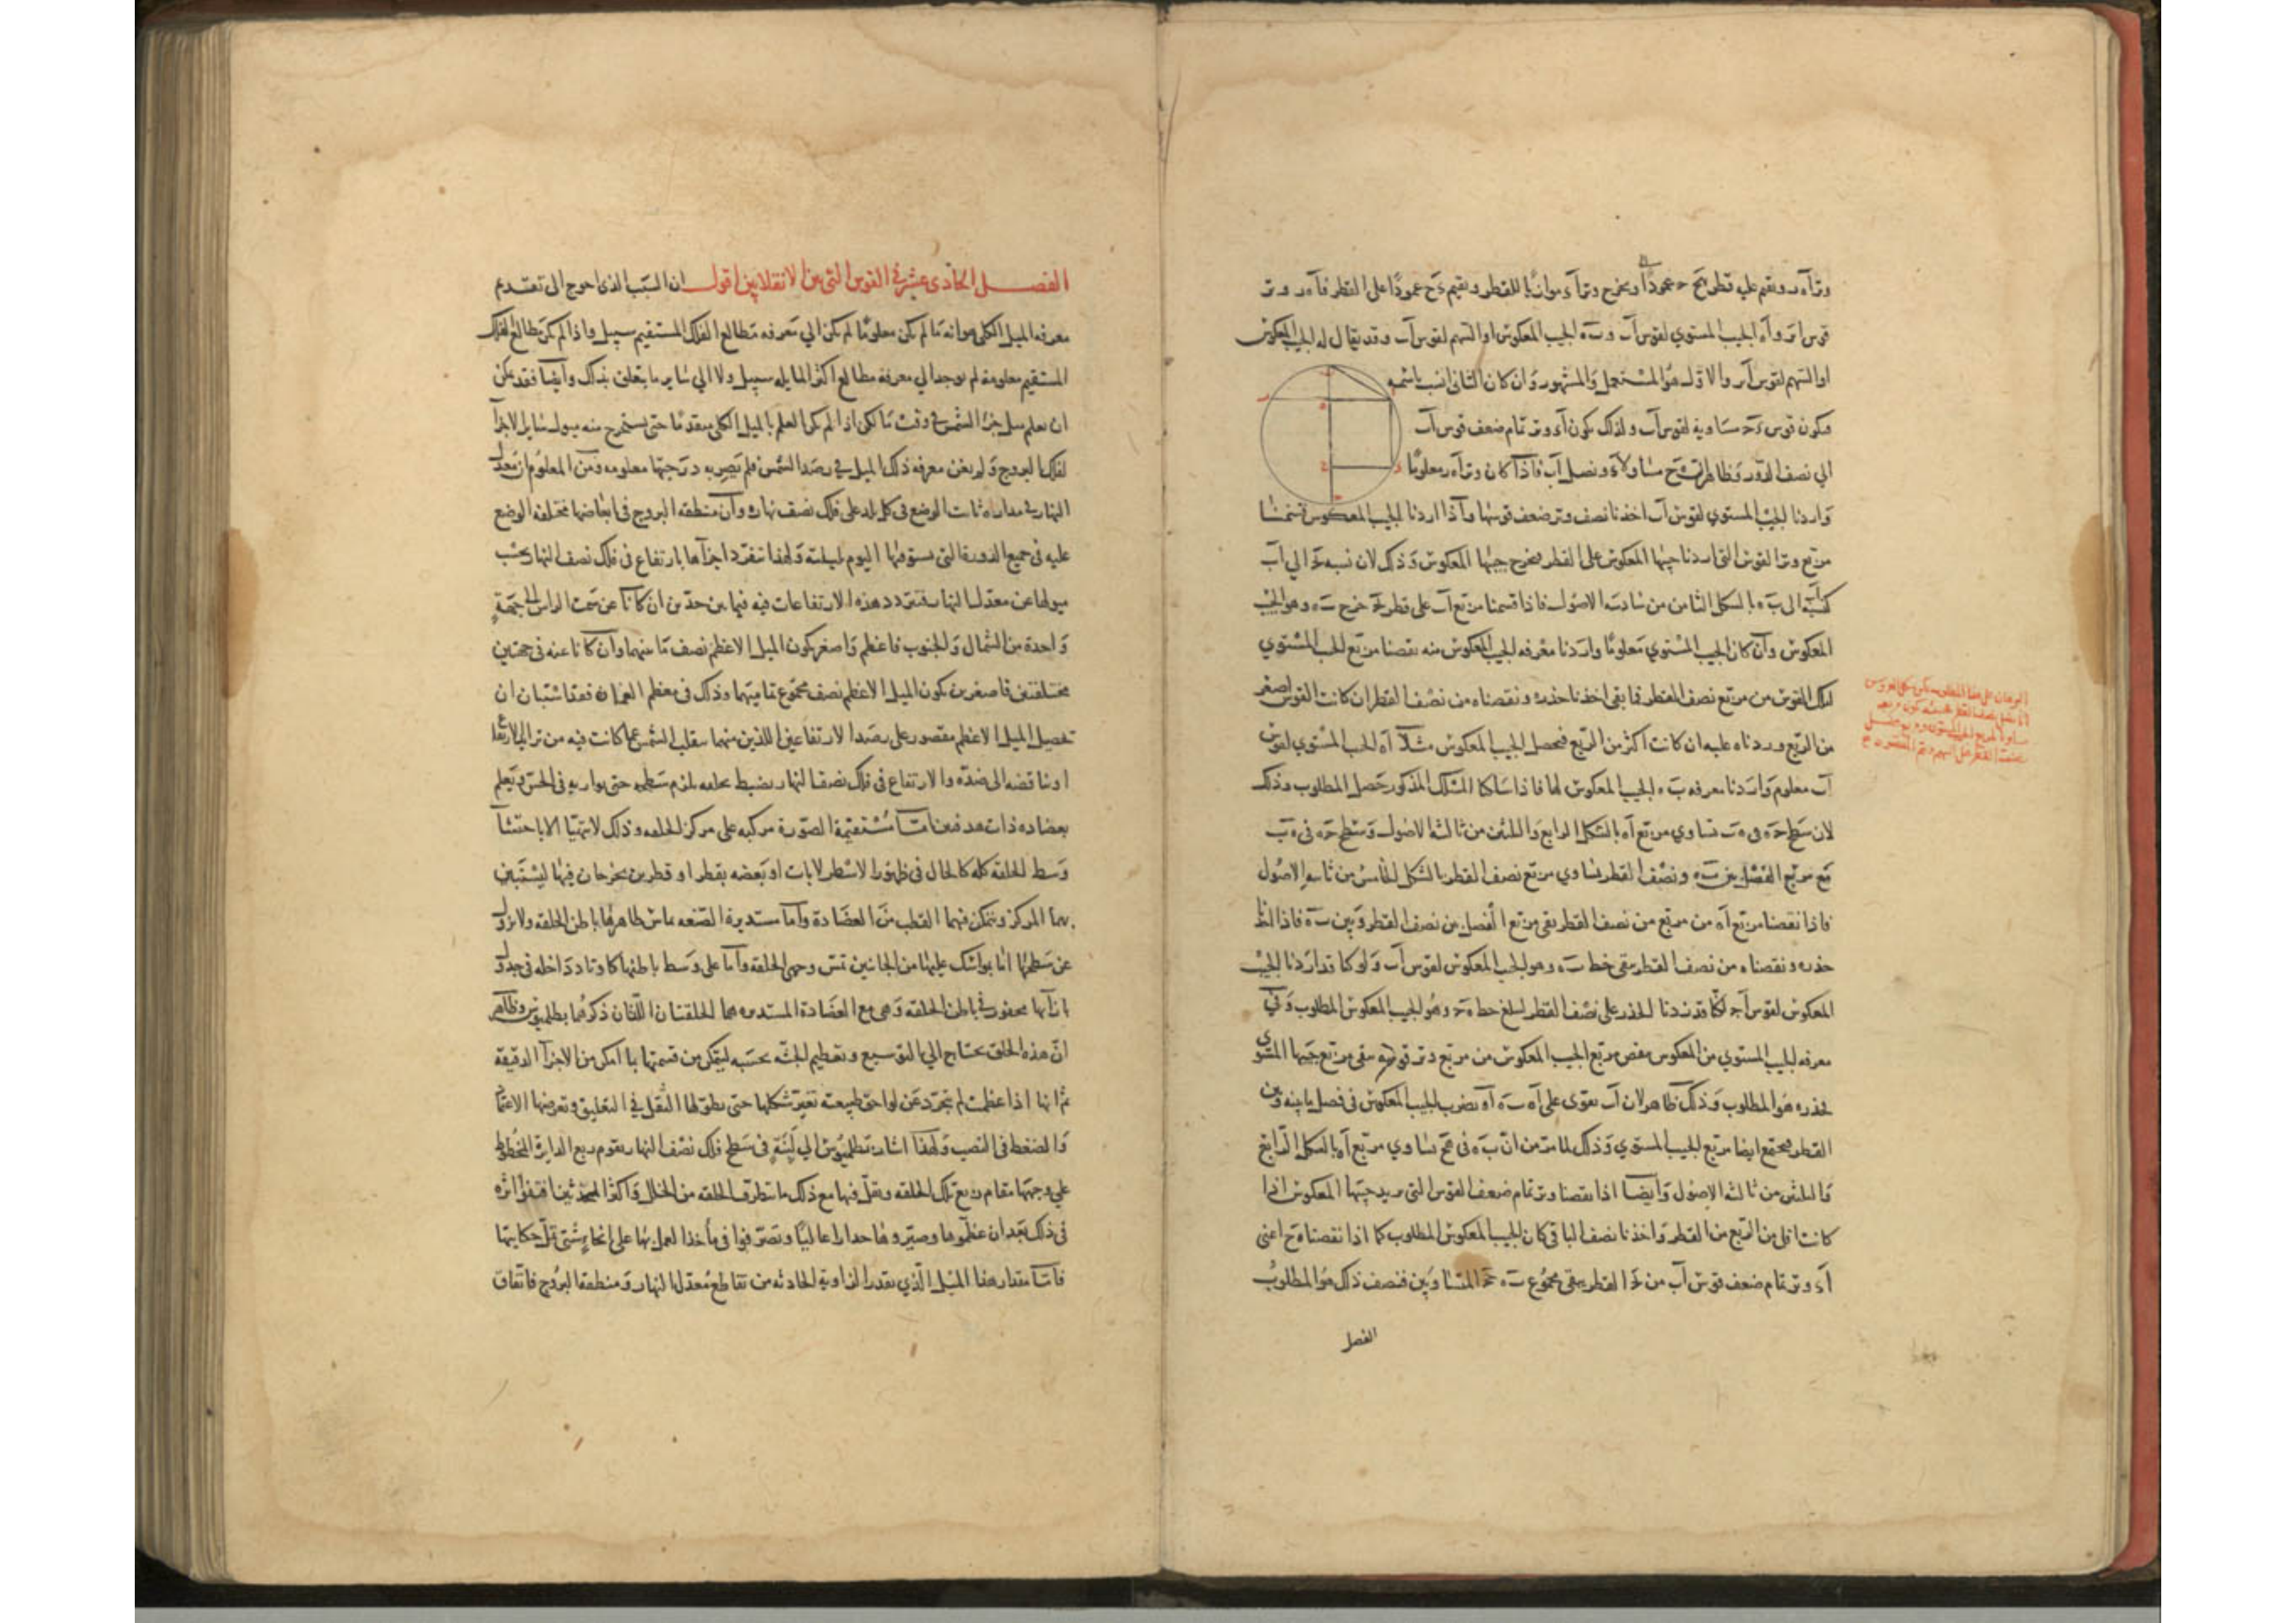 وتر آه ر ونقيم عليه قطر بح ح عمودًا ونخرج وتر آء موازيًا للقطر ونقيم ءح عمودًا على القطر فآه ر وتر
قوس ابر وآه الجيب المستوي لقوس آب وبه الجيب المعكوس او السهم لقوس آب وقد يقال له الجيب المعكوس
او السهم لقوس آبر والاول هو المستعمل والمشهور وان كان الثاني انسب باسمه
ويكون قوس ءح مساوية لقوس آب ولذلك يكون آء وتر تمام ضعف قوس آب
الي نصف الدور وظاهر ان ه ح مساو لآء ونصل آب فاذا كان وتر آه ر معلومًا
واردنا الجيب المستوي لقوس آب اخذنا نصف وتر ضعف قوسها وآذا اردنا الجيب المعكوس قسمنا
مربع وتر القوس التي اردنا جيبها المعكوس على القطر يخرج جيبها المعكوس وذلك لان نسبة الي آب
كنسبة آب الى به بالشكل الثامن من سادسة الاصول فاذا قسمنا مربع آب على قطر خرج به وهو الجيب
المعكوس وآن كان الجيب المستوي معلومًا واردنا معرفه الجيب المعكوس منه نقصنا مربع الجيب المستوي
لتلك القوس من مربع نصف القطر فما بقى اخذنا جذره ونقصناه من نصف القطر ان كانت القوس اصغر
من الربع وزدناه عليه ان كانت اكثر من الربع فيحصل الجيب المعكوس مثلًا آه الجيب المستوي لقوس
آب معلوم واردنا معرفه به الجيب المعكوس لها فاذا سلكنا المسلك المذكور حصل المطلوب وذلك
لان سطح حه في ه ب يساوي مربع آه بالشكل الرابع والثلثين من ثالثة الاصول وسطح حه في ه ب
مع مربع الفضل بين به ونصف القطر يساوي مربع نصف القطر بالشكل الخامس من ثانيه الاصول
فاذا نقصنا مربع آه من مربع من نصف القطر بقي مربع الفضل من نصف القطر وبين به فاذا اخذنا
جذره ونقصناه من نصف القطر بقي خط به وهو الجيب المعكوس لقوس آب ولو كنا قد اردنا الجيب
المعكوس لقوس آح لكنا قد زدنا الجذر على نصف القطر ليبلغ خط ه ح وهو الجيب المعكوس المطلوب وفي
معرفه الجيب المستوي من المعكوس ننقص مربع الجيب المعكوس من مربع وتر قوسه يبقى مربع جيبها المستوي
فجذره هو المطلوب وذلك ظاهر لان آب يقوى على آه به او نضرب الجيب المعكوس في فصل ما بينه وبين
القطر فيجتمع ايضا مربع الجيب المستوي وذلك لما مر من ان به في ه ح يساوي مربع آه بالشكل الرابع
والثلثين من ثالثه الاصول وايضا اذا نقصنا وتر تمام ضعف القوس التي نريد جيبها المعكوس اذا
كانت اقل من الربع من القطر واخذنا نصف الباقي كان الجيب المعكوس المطلوب كما اذا نقصنا ه ح اعني
آء وتر تمام ضعف قوس آب من القطر يبقى مجموع به المتساويين فنصف ذلك هو المطلوب
الفصل
الفصل الحادى عشر في القوس التي بين الانقلابين اقول ان السبب الذي احوج الى تقديم
معرفه الميل الكلي هو انه ما لم يكن معلومًا لم يكن الي معرفه مطالع الفلك المستقيم سبيل واذا لم يكن مطالع الفلك
المستقيم معلومة لم يوجد الي معرفة مطالع اكثر المايله سبيل ولا الي ساير ما يتعلق بذلك وايضا فقد يمكن
ان يعلم ميل جزء الشمس في وقت ما لكن اذا لم يكن العلم بالميل الكلي متقدمًا حتى يستخرج منه ميول ساير الاجزآء
لفلك البروج ولم يغن معرفه ذلك الميل في رصد الشمس فلم تصر به درجتها معلومه ومن المعلوم ان معدل
النهار في مداره ثابت الوضع في كل بلد على فلك نصف نهاره وآن منطقه البروج في ابعاضها مختلفه الوضع
عليه في جميع الدورة التي يستوفيها اليوم بليلته ولهذا تنفرد اجزآها بارتفاع في فلك نصف النهار بحسب
ميولها عن معدل النهار فتتردد هذه الارتفاعات فيه فيما بين حدين ان كانا عن سمت الراس الى جهة
واحدة من الشمال والجنوب فاعظم واصغر يكون الميل الاعظم نصف ما بينهما وآن كانا عنه في جهتين
مختلفتين فاصغرين يكون الميل الاعظم نصف مجموع تماميهما وذلك في معظم العمران فقد استبان ان
تحصيل الميل الاعظم مقصور على رصد الارتفاعين اللذين منهما ينقلب الشمس عما كانت فيه من تزايد الارتفاع
او تناقضه الى ضده والارتفاع في فلك نصف النهار يضبط بحلقه يلزم سطحه حتى يوازيه في الحس ويعلم
بعضاده ذات هدفين اما مستقيمة الصورة مركبه على مركز الحلقه وذلك لا يتهيا الا باحتشآء
وسط الحلقة كله كالحال في ظهور الاسطرلابات او بعضه بقطر او قطرين يخرجان فيها ليستبين
بهما المركز ويتمكن فيهما القطب من العضادة وآما مستديرة الصنعه يماس ظاهرها باطن الحلقه ولا يزول
عن سطحها اما بمواسك عليها من الجانبين تمس وجهي الحلقه وآما على وسط باطنها كاوتاد داخله في جدول
بازآيها محفور في باطن الحلقه وهي مع العضادة المستديره هما الحلقتان اللتان ذكرهما بطلميوس وظاهر
انّ هذه الحلق يحتاج الي التوسيع وتعظيم الجثه بحسبه ليتمكن من قسمتها بما امكن من الاجزآ الدقيقه
ثم انها اذا عظمت لم تتجرد عن لواحق طبيعته تغير شكلها حتى يطولها الثقل في التعليق وتعرضها الاعتماد
والضغط في النصب ولهذا اشار بطلميوس الي لبنة في سطح فلك نصف النهار يقوم ربع الدايرة المخطوط
علي وجهها مقام ربع تلك الحلقه ويقل فيها مع ذلك ما يتطرق الحلقه من الخلل وآكثر المحدثين اقتفوا اثره
في ذلك بعد ان عظموها وصيروها جدارا عاليًا وتصرفوا في مأخذ العمل بها على انحاء شتى تمل حكايتها
فاما مقدار هذا الميل الذي بقدر الزاوية الحادثه من تقاطع معدل النهار ومنطقه البروج فاتفاق